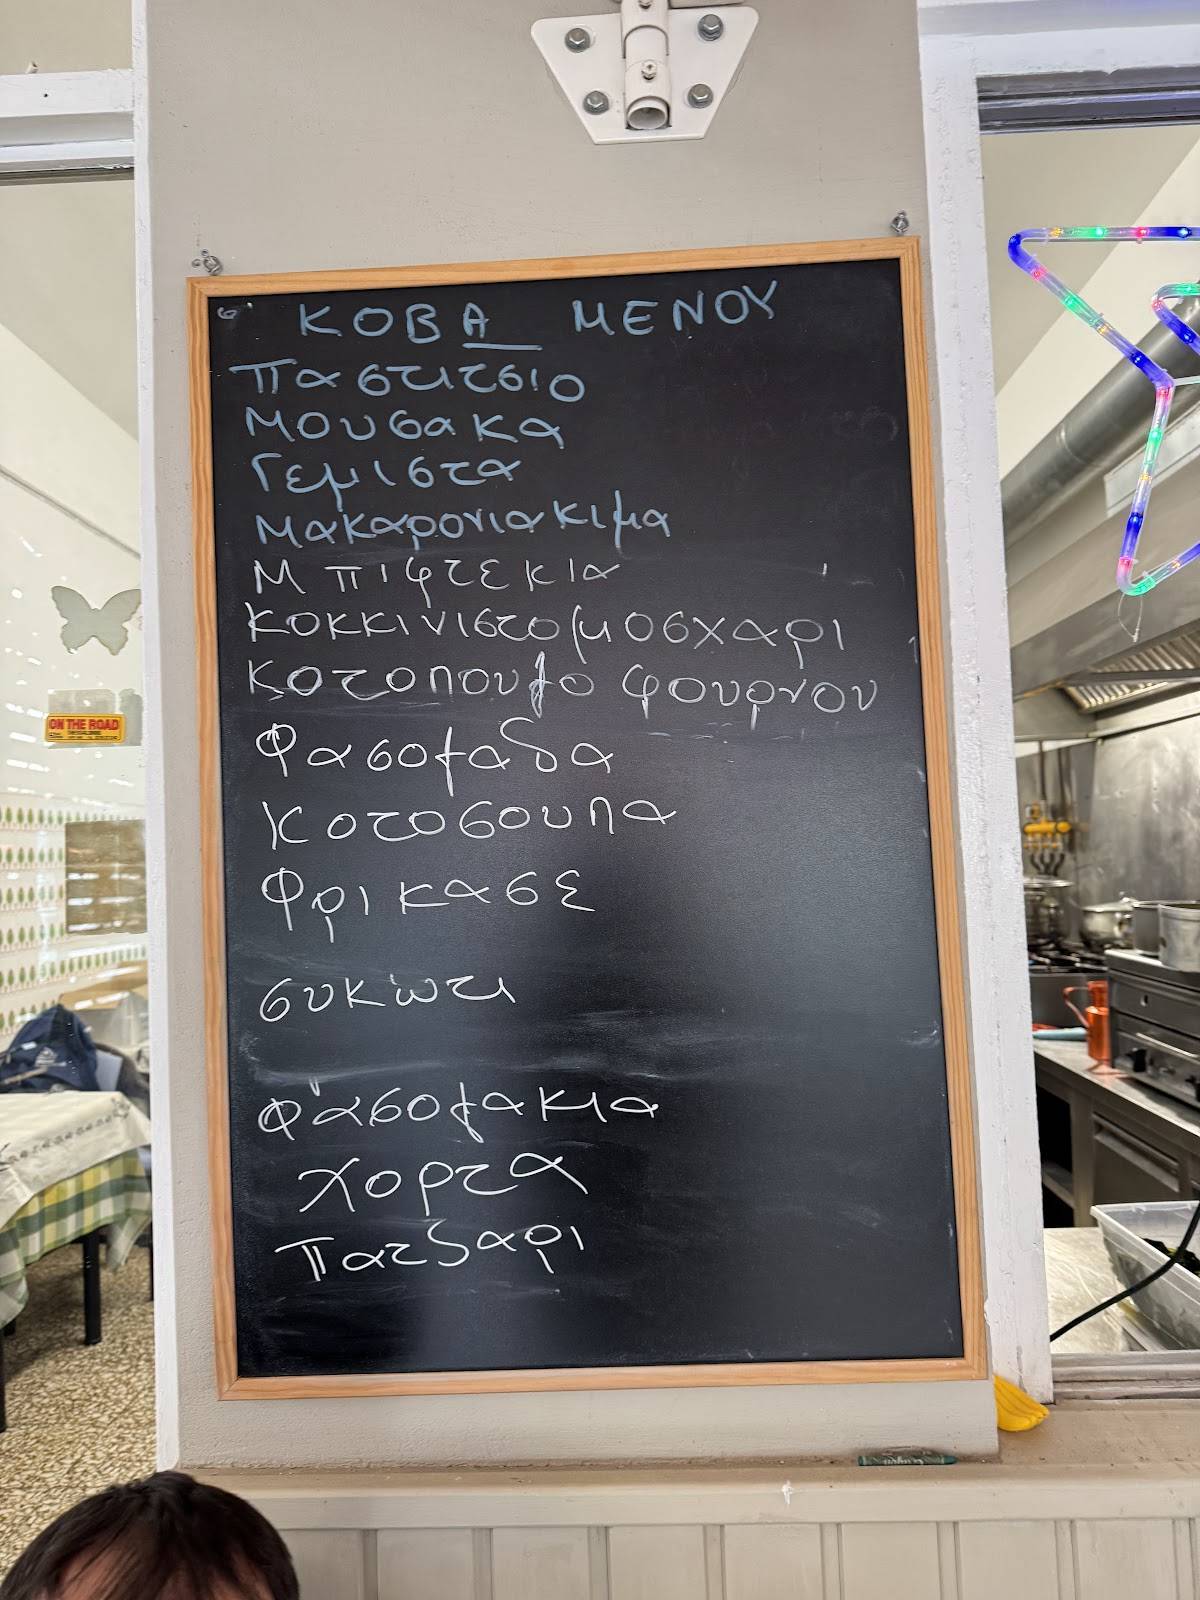 ΚΟΒΑ ΜΕΝΟΥ
Παστιτσιο
Μουσακα
Γεμιστα
Μακαρονια κιμα
Μπιφτεκια
Κοκκινιστο μοσχαρι
Κοτοπουλο φουρνου
Φασολαδα
Κοτοσουπα
Φρικασε
συκώτι
Φάσολακια
Χορτα
Πατζαρι
ON THE ROAD